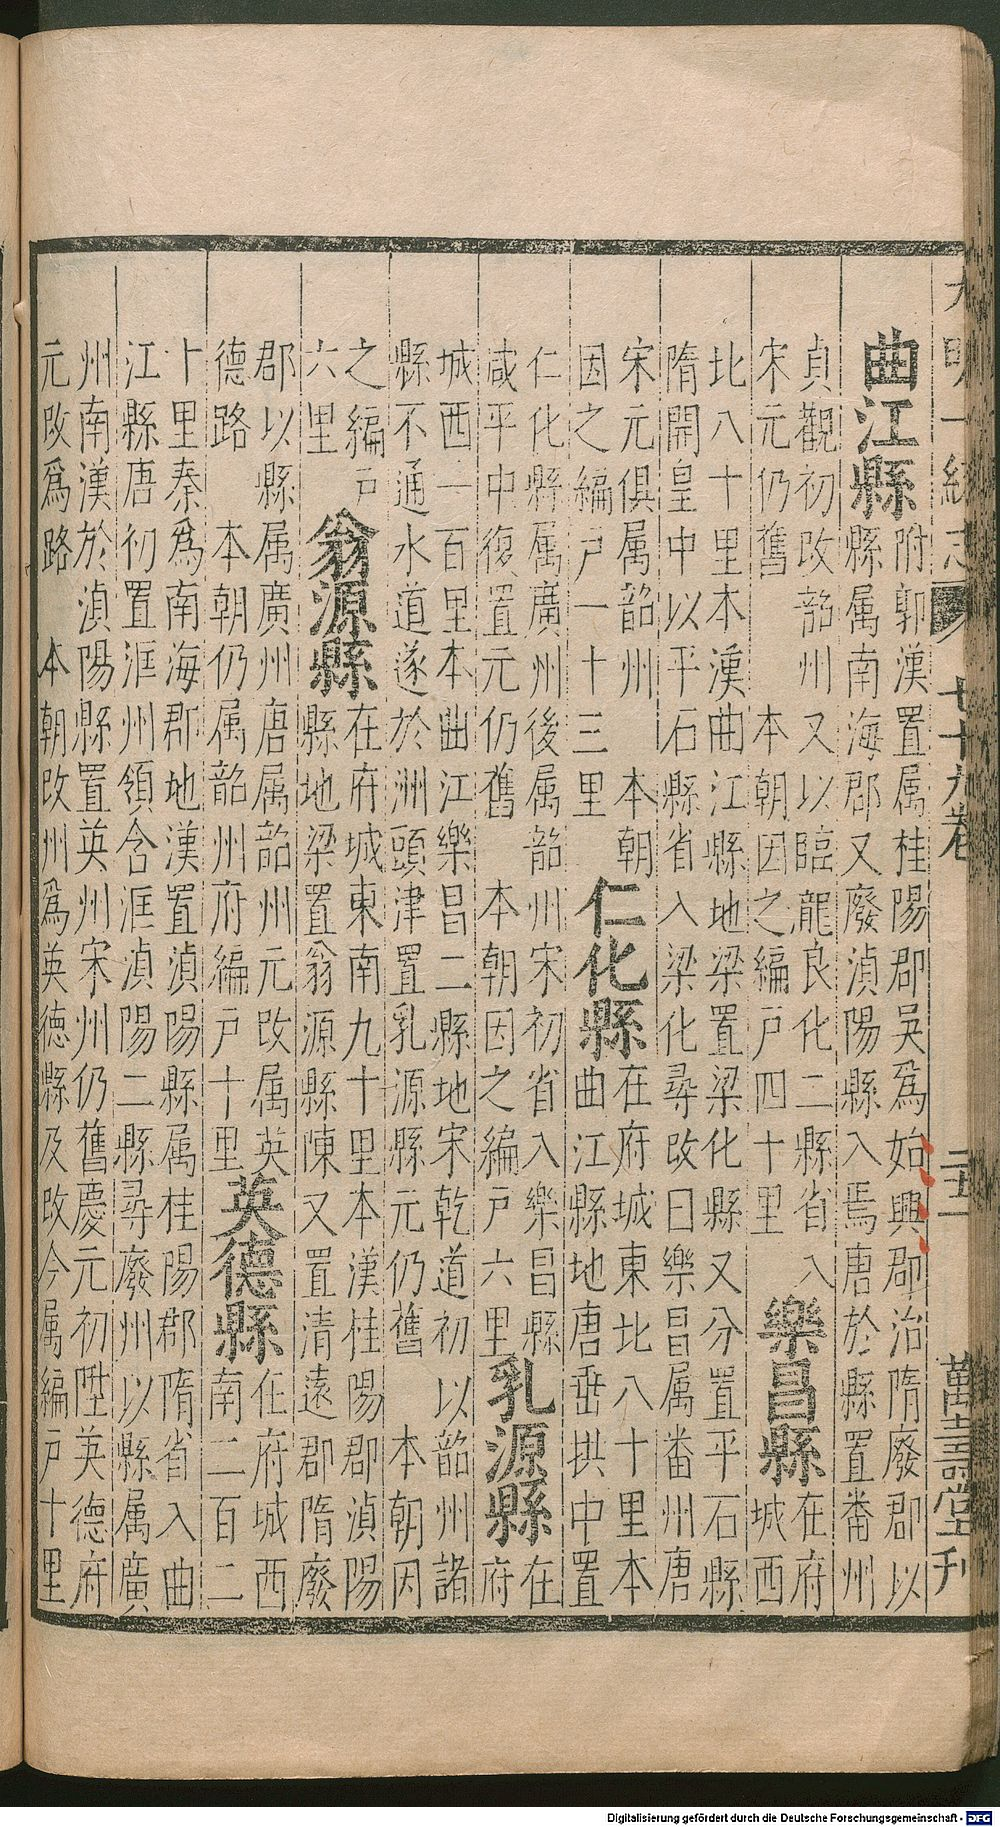 大明一統志 七十九卷 二十一 萬壽堂刊
曲江縣
附郭漢置屬桂陽郡吳爲始興郡治隋廢郡以
縣属南海郡又廢湞陽縣入焉唐於縣置番州
貞觀初改韶州又以臨瀧良化二縣省入
宋元仍舊 本朝因之編戸四十里
樂昌縣
在府
城西
北八十里本漢曲江縣地梁置梁化縣又分置平石縣
隋開皇中以平石縣省入梁化尋改曰樂昌属番州唐
宋元俱属韶州 本朝
因之編戸一十三里
仁化縣
在府城東北八十里本
曲江縣地唐垂拱中置
仁化縣属廣州後属韶州宋初省入樂昌縣
咸平中復置元仍舊 本朝因之編戸六里
乳源縣
在
府
城西一百里本曲江樂昌二縣地宋乾道初以韶州諸
縣不通水道遂於洲頭津置乳源縣元仍舊 本朝因
之編戸
六里
翁源縣
在府城東南九十里本漢桂陽郡湞陽
縣地梁置翁源縣陳又置清遠郡隋廢
郡以縣属廣州唐属韶州元改属英
德路 本朝仍属韶州府編戸十里
英德縣
在府城西
南二百二
十里秦爲南海郡地漢置湞陽縣属桂陽郡隋省入曲
江縣唐初置洭州領含洭湞陽二縣尋廢州以縣属廣
州南漢於湞陽縣置英州宋州仍舊慶元初陞英德府
元改爲路 本朝改州爲英德縣及改今属編戸十里
Digitalisierung gefördert durch die Deutsche Forschungsgemeinschaft - DFG